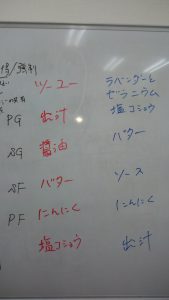 強剤
ソース
ラベンダーと
ゼラニウム
PG 出汁
塩コショウ
SG 醤油
バター
SF バター
ソース
PF にんにく
にんにく
塩コショウ
出汁